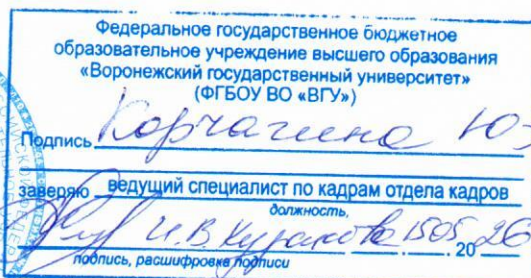 Федеральное государственное бюджетное
образовательное учреждение высшего образования
«Воронежский государственный университет»
(ФГБОУ ВО «ВГУ»)
Подпись Корчагина Ю
заверяю ведущий специалист по кадрам отдела кадров
должность,
И.В. 1505 2026
подпись, расшифровка подписи